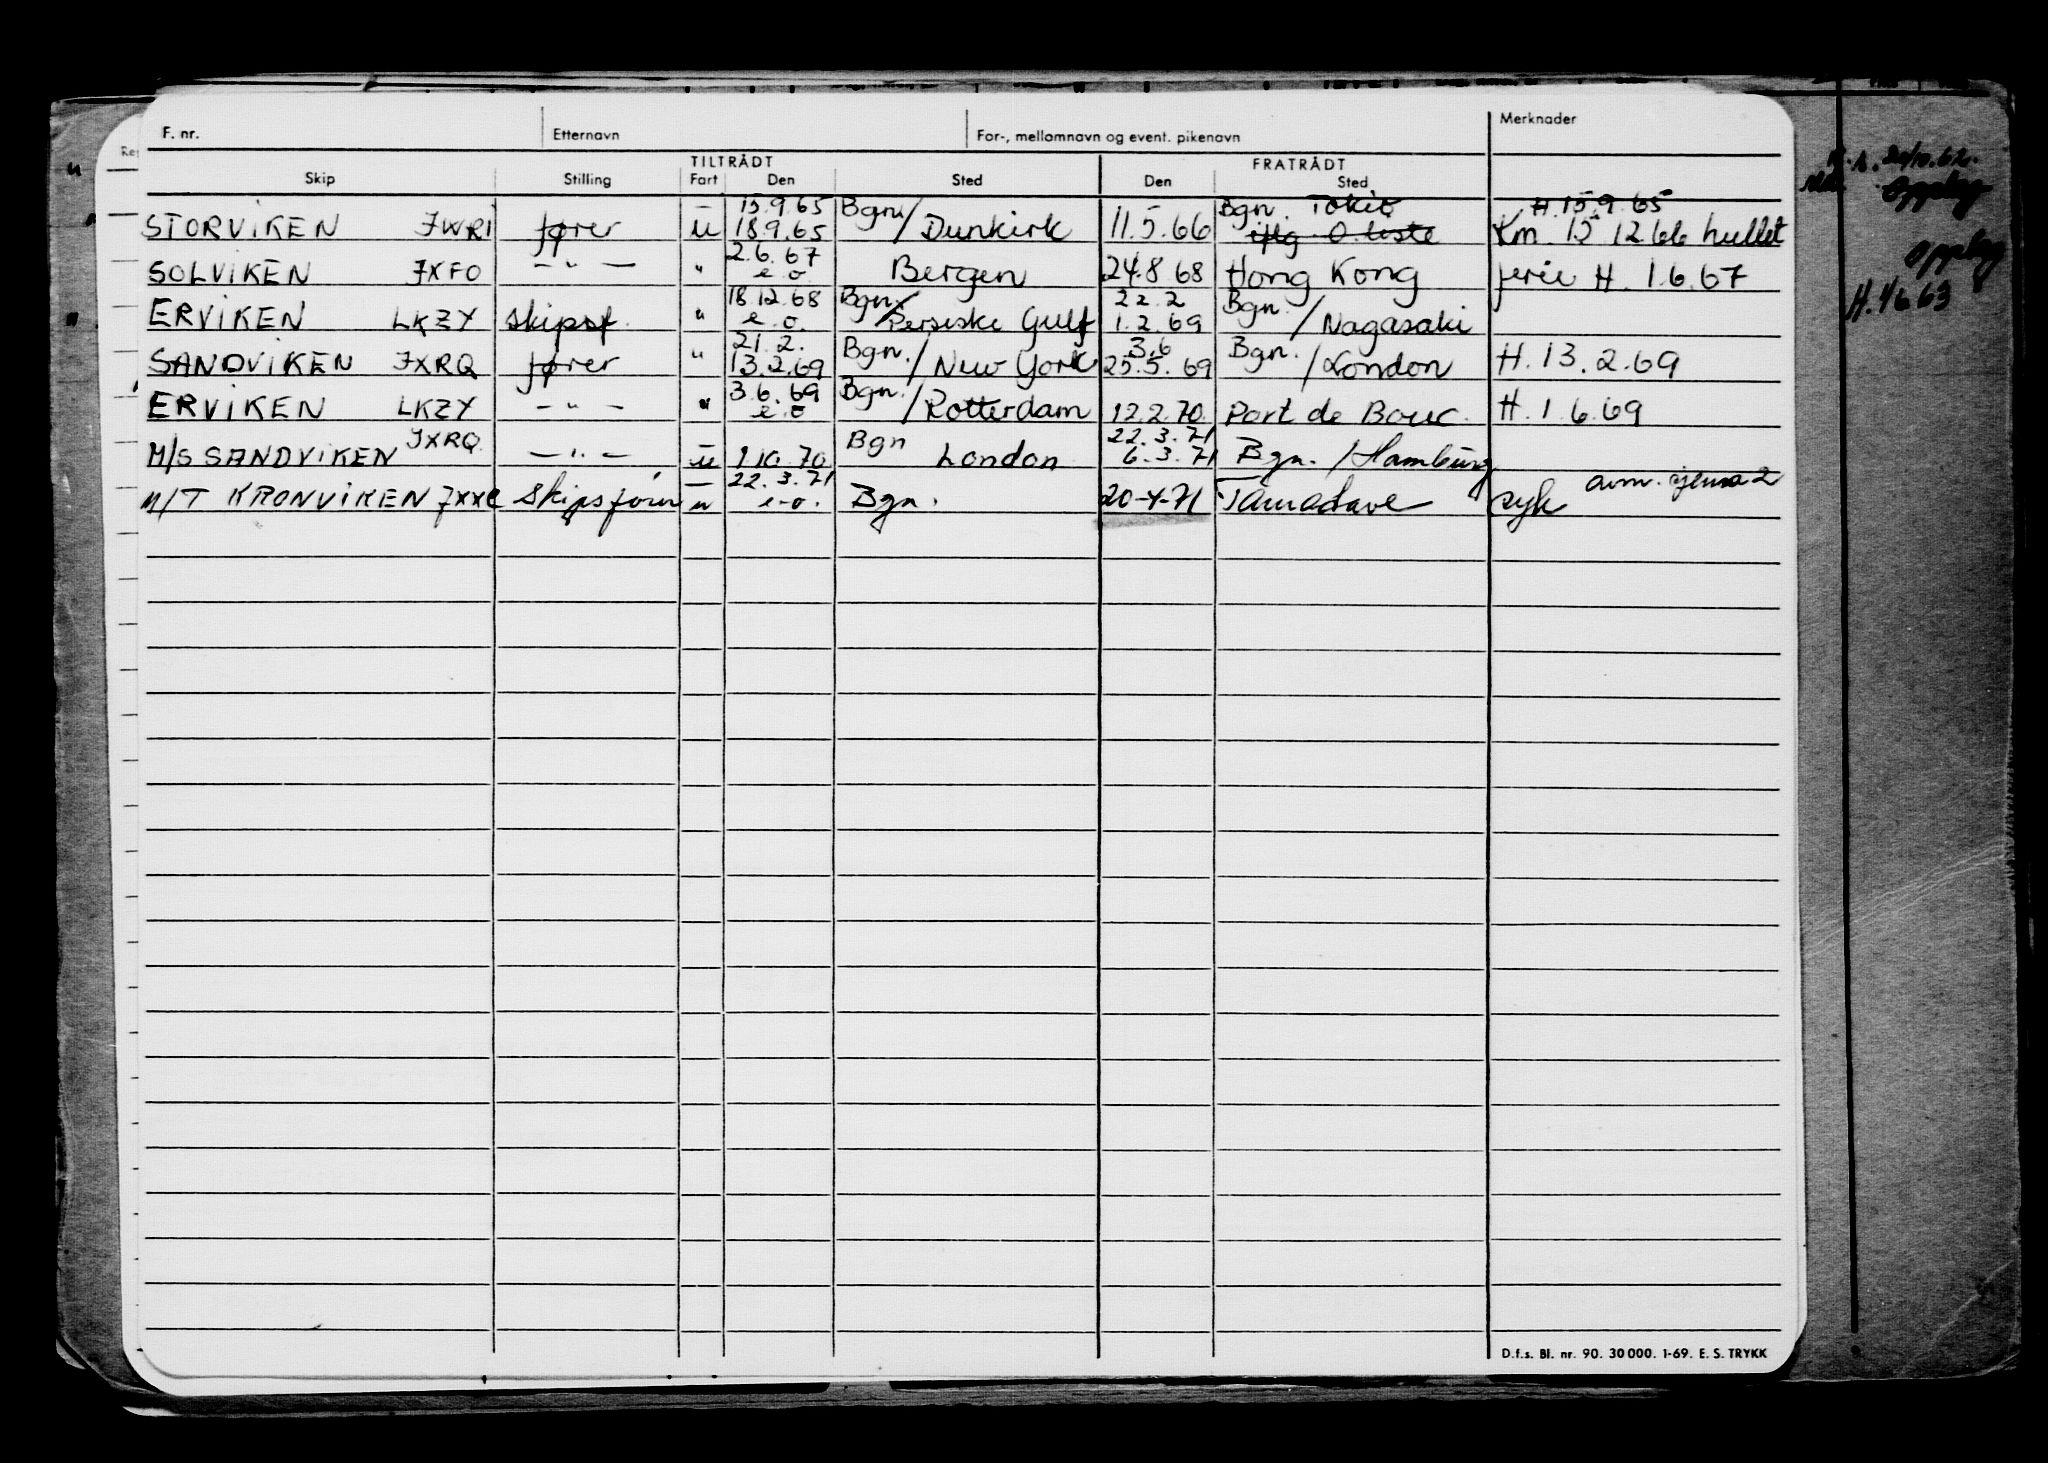 F. nr. Etternavn For-, mellomnavn og event. pikenavn Merknader
TILTRÅDT FRATRÅDT
Skip Stilling Fart Den Sted Den Sted
— 15.9.65 Bgn. Bgn. Tokio H. 15.9.65
STORVIKEN JWRI fører u 18.9.65 / Dunkirk 11.5.66 iflg. O. liste Km. 15 12.66 hullet
2.6.67
SOLVIKEN JXFO — " — " e.o Bergen 24.8.68 Hong Kong ferie H. 1.6.67
18.12.68 Bgn. 22.2 Bgn.
ERVIKEN LKZY skipsf. " e.o. / Persiske Gulf 1.2.69 / Nagasaki
21.2. Bgn. 3.6 Bgn.
SANDVIKEN JXRQ fører " 13.2.69 / New York 25.5.69 / London H. 13.2.69
3.6.69 Bgn.
ERVIKEN LKZY — " — " e.o / Rotterdam 12.2.70. Port de Bouc. H. 1.6.69
JXRQ — Bgn 22.3.71
M/S SANDVIKEN — " — u 1.10.70 London 6.3.71 Bgn. / Hamburg
— 22.3.71
M/T KRONVIKEN Skipsfører u e.o. Bgn. 20-4-71 Tamatave syk
D.f.s. Bl. nr. 90. 30 000. 1-69. E. S. TRYKK
Opplag
Opplag
H. 1/6 63